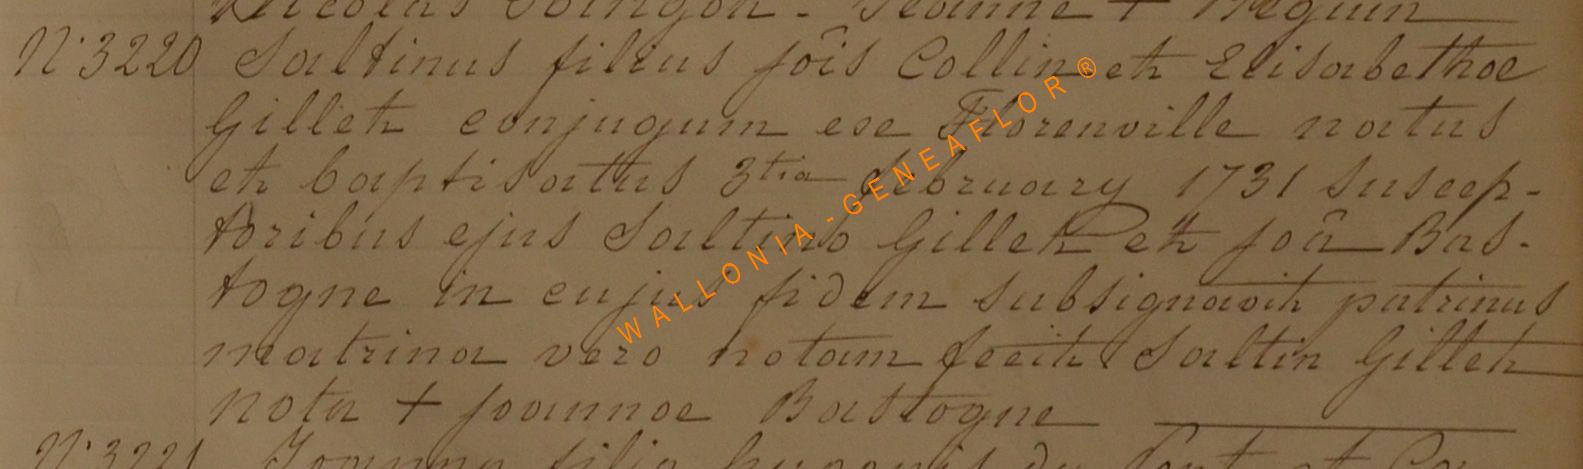 Nicolas Jeanne + Preguin
N° 3220 Saltinus filius jôis Collin eth Elisabethae
Gilleth conjugum exe Florenville natus
eth baptisatus 3tia february 1731 suscep-
toribus ejus Saltino Gilleth eth joâ Bas-
togne in cujus fidem subsignavith patrinus
matrina vero notam fecith Saltin Gilleth
nota + joannae Bastogne
N° 3221 Joanna filia du Pont et
WALLONIA-GENEAFLOR®